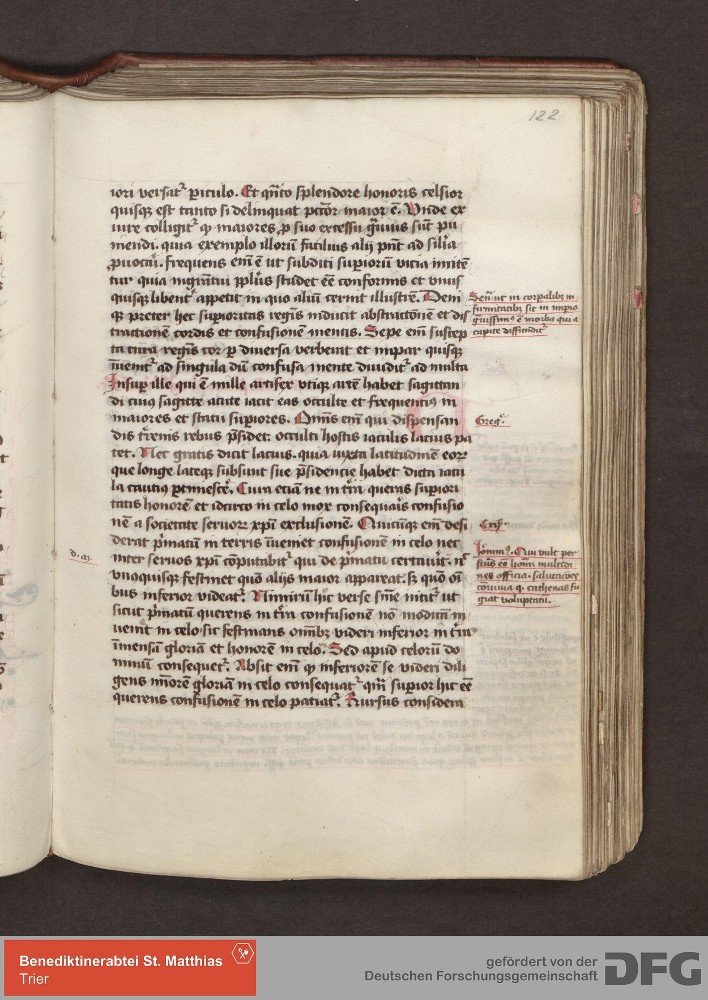 122
iori versatᷣ ꝑiculo. Et qn̄to splendore honoris celsior
quisqꝫ est tanto si delinquat pctōr maior ē. Unde ex
iure colligitᷣ ꝙ maiores ꝓ suo excessu gͣuius sūt pu
niendi. quia exemplo illorū facilius alij pn̄t ad silīa
ꝓuocari. frequens enī ē ut subditi suꝑiorū vicia imitē
tur quia
studet eē conformis et vnus
quisqꝫ libentᷣ appetit in quo aliū cernit illustrē. Deni
qꝫ preter hec suꝑioritas regīs inducit abstractōnē et dis
tractionē cordis et confusionē mentis. Sepe enī suscep
ta cura regīs cor ꝑ diversa verberat et impar quisqꝫ
īuenitᷣ ad singula dū confusa mente diuiditᷣ ad multa
Insuꝑ ille qui ē mille artifex vtiqꝫ artē habet sagittan
di cuius sagitte acute iacit eas occulte et frequentius in
maiores et statu suꝑiores. Om̄is enī qui dispensan
dis tr̄enis rebus p̄sidet: occulti hostis iaculis lacius pa
tet. Nec gratis dicit lacius. quia iuxta latitudinē eorꝝ
que longe lateqꝫ subsunt sue p̄sidencie habet dicta iacu
la cautius ꝑtimescē. Cura etiā ne in tr̄a queras suꝑiori
tatis honorē et idcirco in celo mox consequaīs confusio
nē a societate servorꝝ xp̄i exclusionē. Quicūqꝫ enī desi
derat p̄matū in terris īueniet confusionē in celo nec
inter seruos xp̄i cōputabitᷣ qui de p̄matu certauīt. nͨ
vnusquisqꝫ festinet quō alijs maior appareat. sꝫ quō oī
bus inferior videatᷣ. Nimirū hīc verse sm̄e nititᷣ ut
sicut p̄matū querens in tr̄a confusionē nō modicā in
uenīt in celo sic festinans om̄ibꝫ videri inferior in tr̄a
īmensā gloriā et honorē in celo. Sed apud celorū do
minū consequetᷣ. Absit enī ꝙ inferiorē se videri dili
gens minorē gloriā in celo consequatᷣ qm̄ suꝑior hic eē
querens confusionē in celo patiatᷣ. Rursus considera
Senͫ ut in corꝑalibꝫ in
firmitatibꝫ sic in
gͣuissimꝰ ē morbꝰ qui a
capite diffunditᷣ
Gregᷣ.
Criſ.
Qui vult per
fcūs eē
officia. salutaciōes
cōuiuia qͣ cathenas fu
giat voluptatū.
Benediktinerabtei St. Matthias
Trier
gefördert von der
Deutschen Forschungsgemeinschaft
DFG